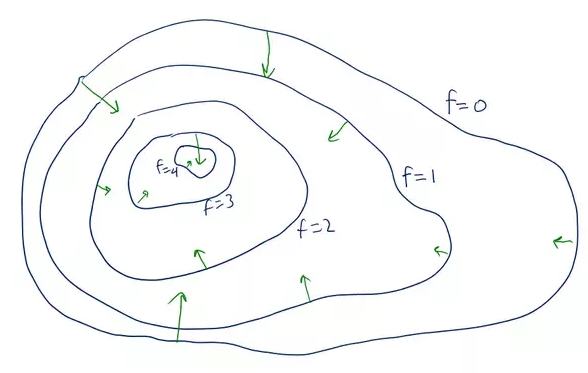 f=0
f=1
f=4
f=3
f=2